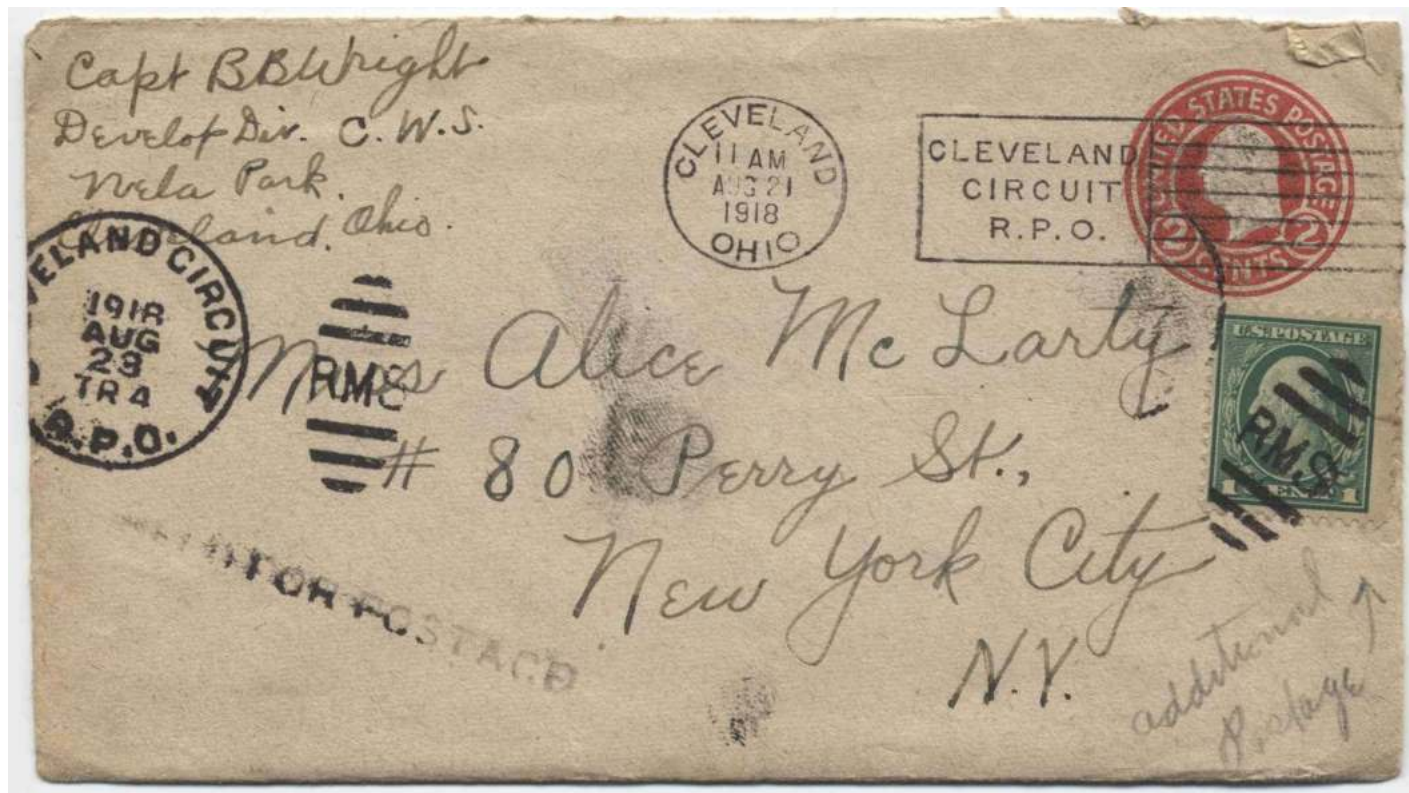 Capt BBWright
Develop Div. C. W. S.
Nela Park.
Cleveland, Ohio.
CLEVELAND
11 AM
AUG 21
1918
OHIO
CLEVELAND
CIRCUIT
R.P.O.
UNITED STATES POSTAGE
2 CENTS 2
CLEVELAND CIRCUIT
1918
AUG
23
TR 4
R.P.O.
RMS
Miss Alice McLarty
# 80 Perry St.,
New York City
N.Y.
U.S. POSTAGE
R.M.S.
1 CENT 1
FOR POSTAGE
additional
Postage